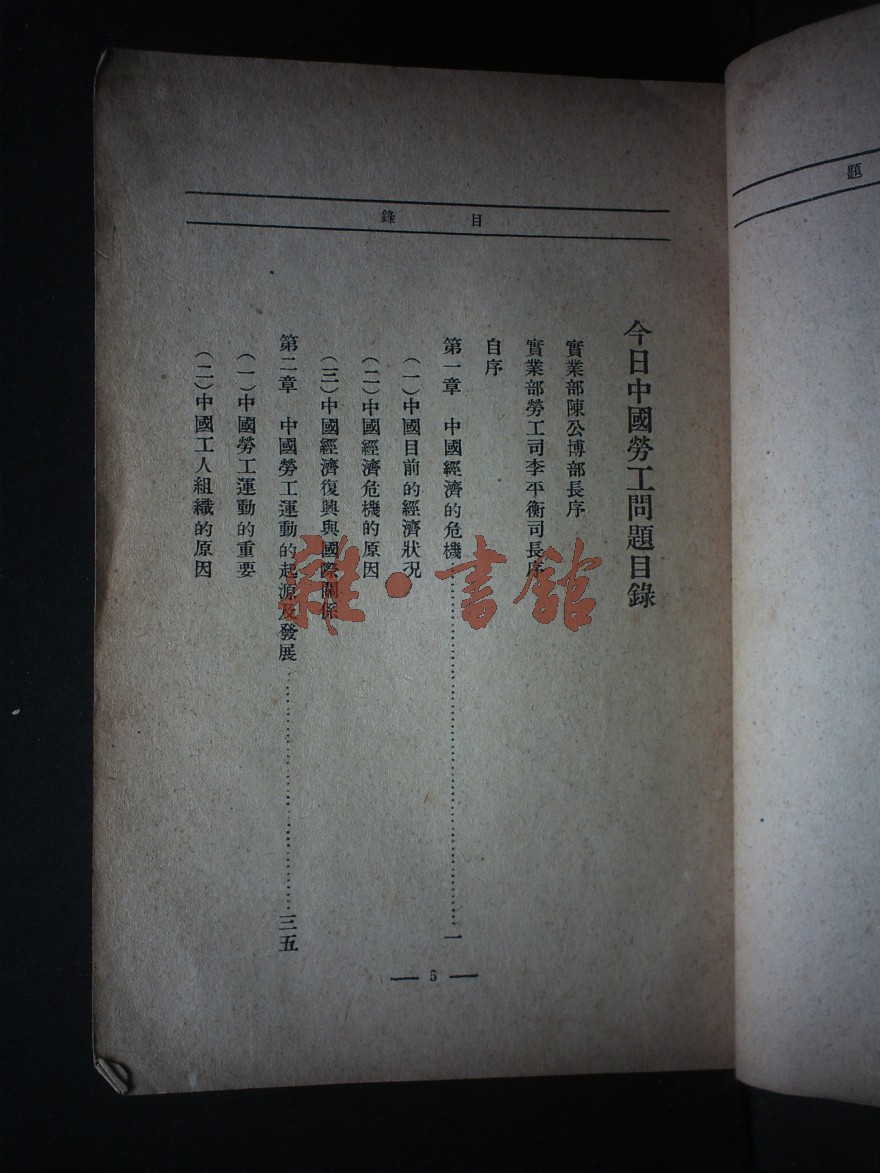 目錄
今日中國勞工問題目錄
實業部陳公博部長序
實業部勞工司李平衡司長序
自序
第一章 中國經濟的危機……………………一
(一)中國目前的經濟狀况
(二)中國經濟危機的原因
(三)中國經濟復興與國際關係
第二章 中國勞工運動的起源及發展……………………三五
(一)中國勞工運動的重要
(二)中國工人組織的原因
— 5 —
題
雜·書館